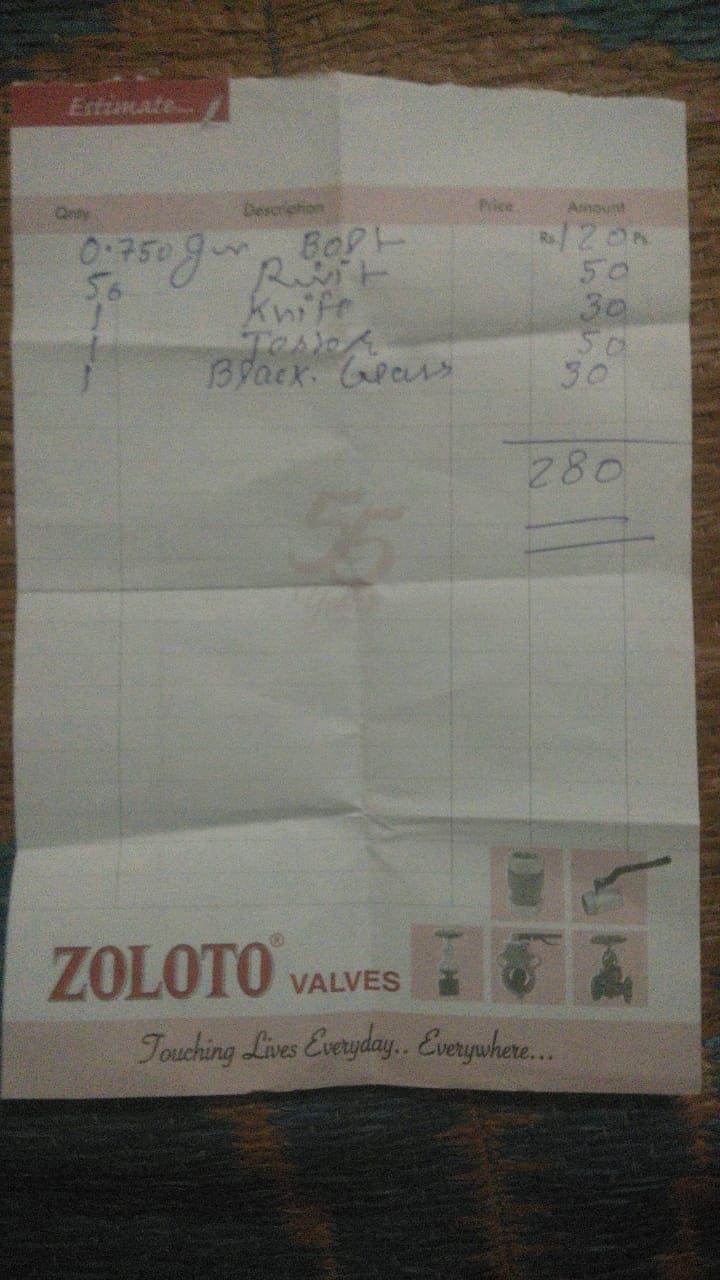 Estimate...
Qnty. Description Price Amount
0.750 gm Bolt Rs. 120 Ps.
50 Rivit 50
1 Knife 30
1 50
1 Black. 30
280
55
ZOLOTO® VALVES
Touching Lives Everyday.. Everywhere...